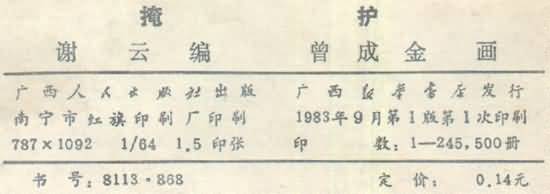 掩 护
谢云编 曾成金 画
广西人民出版社出版 广西新华书店发行
南宁市红旗印刷厂印刷 1983年9月第1版第1次印刷
787×1092 1/64 1.5印张 印 数：1—245,500册
书 号：8113·868 定 价： 0.14元